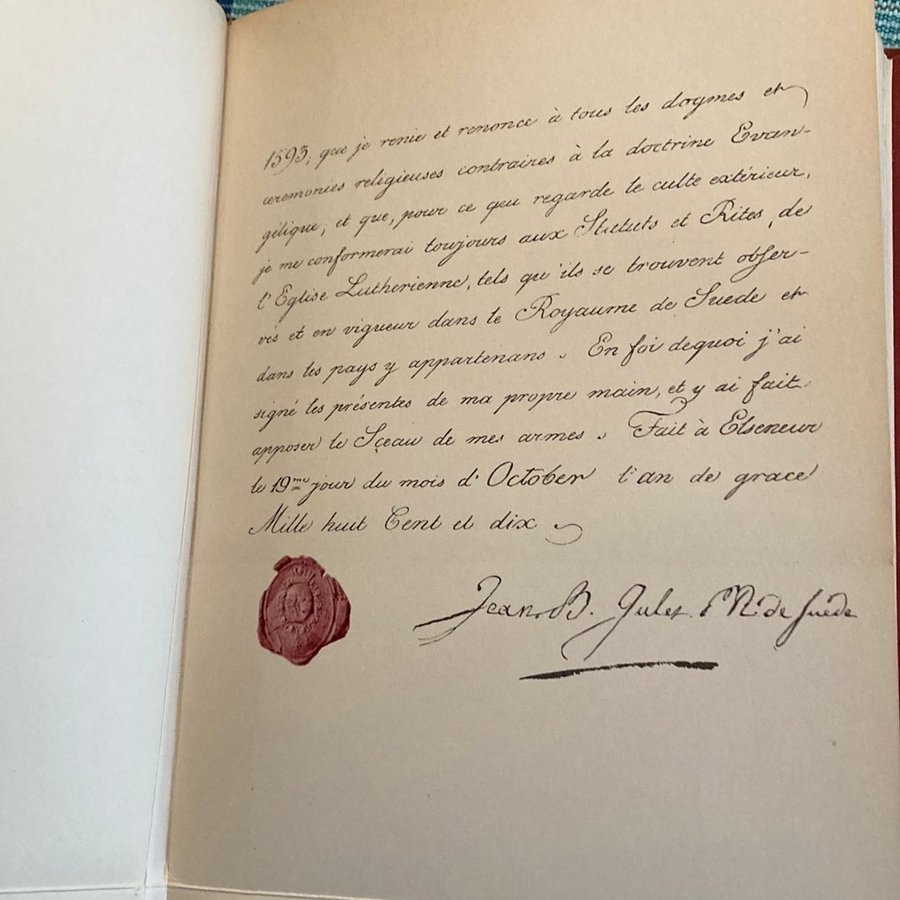 1593, que je renie et renonce à tous les dogmes et
ceremonies religieuses contraires à la doctrine Evan-
gélique; et que, pour ce qui regarde le culte extérieur,
je me conformerai toujours aux Statuts et Rites de
l'Eglise Lutherienne, tels qu'ils se trouvent obser-
vés et en vigueur dans le Royaume de Suede et
dans les pays y appartenans. En foi de quoi j'ai
signé les présentes de ma propre main, et y ai fait
apposer le Sçeau de mes armes. Fait à Elseneur
le 19me jour du mois d'October l'an de grace
Mille huit Cent et dix
Jean. B. Jules. de Suede